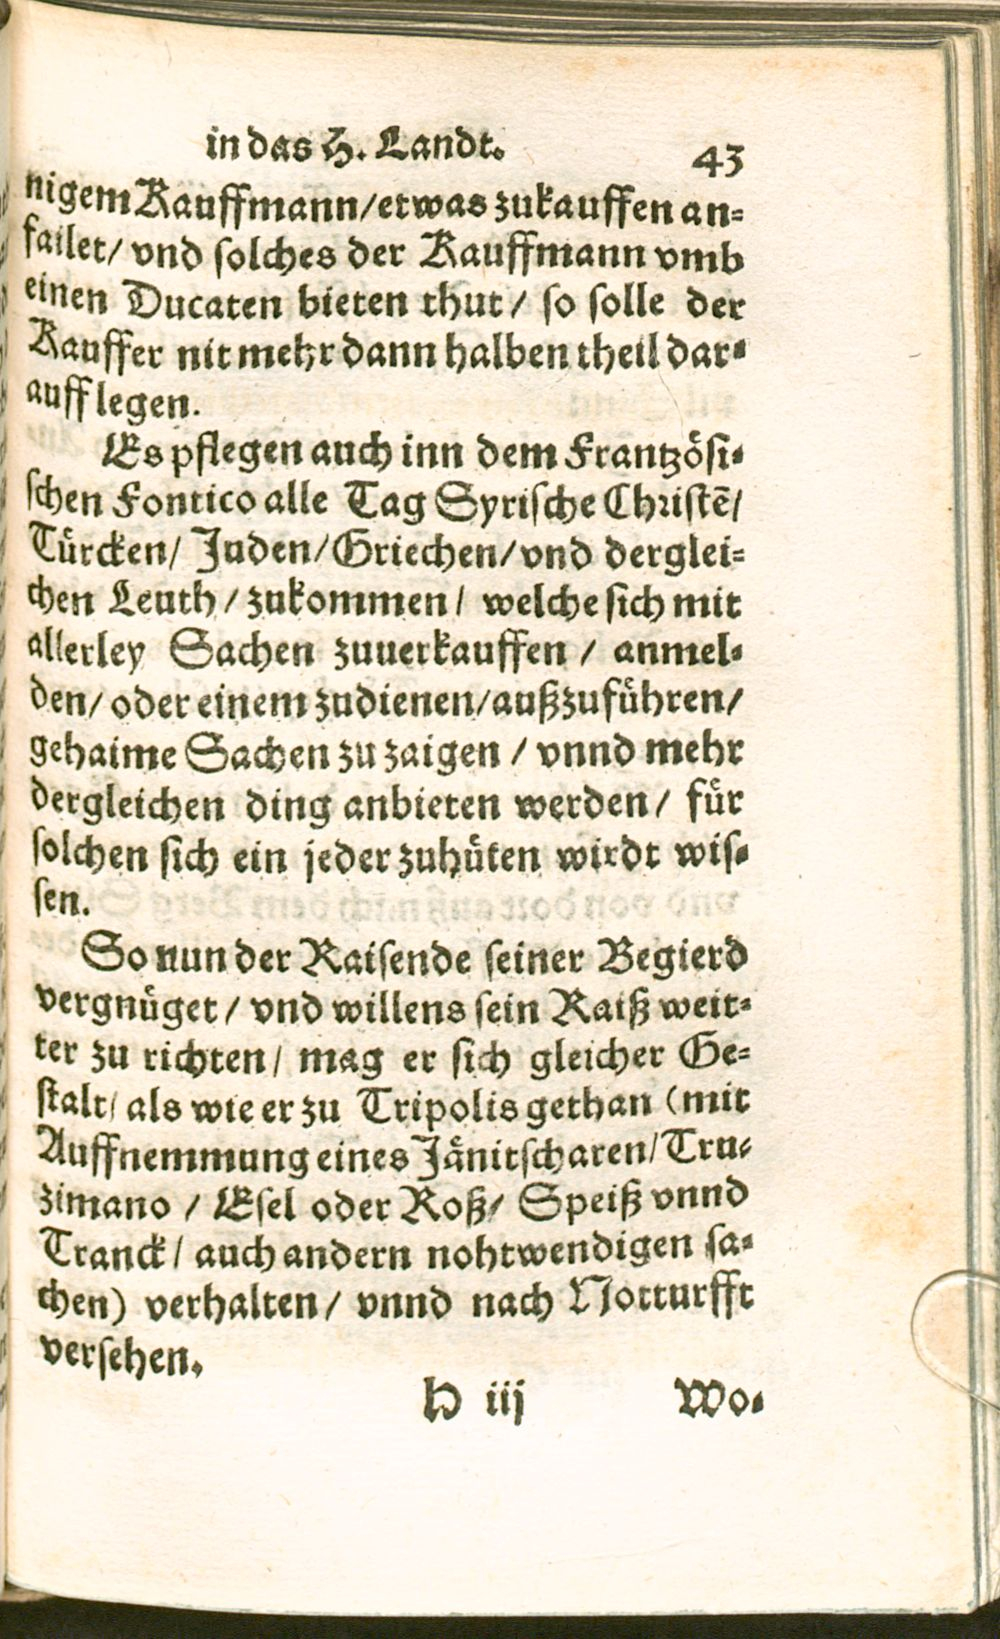 in das H. Landt. 43
nigem Kauffmann/etwas zukauffen an=
failet/ vnd solches der Kauffmann vmb
einen Ducaten bieten thut/ so solle der
Kauffer nit mehr dann halben theil dar=
auff legen.
Es pflegen auch inn dem Frantzösi=
schen Fontico alle Tag Syrische Christē/
Türcken/ Juden/Griechen/vnd derglei=
chen Leuth/ zukommen/ welche sich mit
allerley Sachen zuuerkauffen/ anmel=
den/ oder einem zudienen/außzuführen/
gehaime Sachen zu zaigen/ vnnd mehr
dergleichen ding anbieten werden/ für
solchen sich ein jeder zuhüten wirdt wis=
sen.
So nun der Raisende seiner Begierd
vergnüget/ vnd willens sein Raiß weit=
ter zu richten/ mag er sich gleicher Ge=
stalt/ als wie er zu Tripolis gethan (mit
Auffnemmung eines Jänitscharen/Tru=
zimano/ Esel oder Roß/ Speiß vnnd
Tranck/ auch andern nohtwendigen sa=
chen) verhalten/ vnnd nach Notturfft
versehen.
H iij Wo=